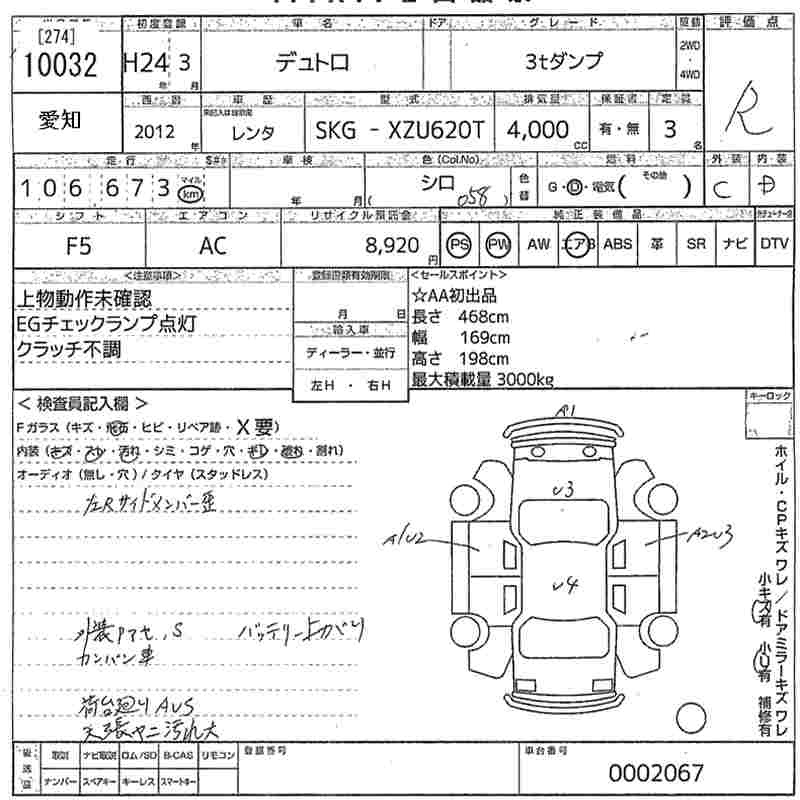 [274]
10032
初度登録
車名
ドア
グレード
駆動
評価点
H24 3
年 月
デュトロ
3tダンプ
2WD
・
4WD
R
愛知
西暦
車歴
型式
排気量
保証書
定員
2012
年
レンタ
SKG - XZU620T
4,000
CC
有・無
3
名
走行
車検
色(Col.No)
燃料
外装
内装
106 673
マイル
km
年 月(
シロ
058)
色替
G・D・電気(
その他
)
C
D
シフト
エアコン
リサイクル預託金
純正装備品
F5
AC
8,920
円
PS
PW
AW
エアB
ABS
革
SR
ナビ
DTV
<注意事項>
登録書類有効期限
<セールスポイント>
上物動作未確認
EGチェックランプ点灯
クラッチ不調
月 日
輸入車
ディーラー・並行
左H ・ 右H
☆AA初出品
長さ 468cm
幅 169cm
高さ 198cm
最大積載量 3000kg
< 検査員記入欄 >
キーロック
Fガラス (キズ・飛石・ヒビ・リペア跡・X要)
内装 (キズ・スレ・汚れ・シミ・コゲ・穴・ｷﾚ・破れ・割れ)
オーディオ (無し・穴) / タイヤ (スタッドレス)
左Rサイドメンバー歪
外装PアセS
バッテリー上がり
カンバン車
荷台廻りAUS
天張ヤニ汚れ大
A1
U3
A1U2
A2U3
U4
ホイル・CPキズワレ/ドアミラーキズワレ
小キズ有 小U有 補修有
後送品
取説
ナビ取説
ロム/SD
B-CAS
リモコン
ナンバー
スペアキー
キーレス
スマートキー
登録番号
車台番号
0002067